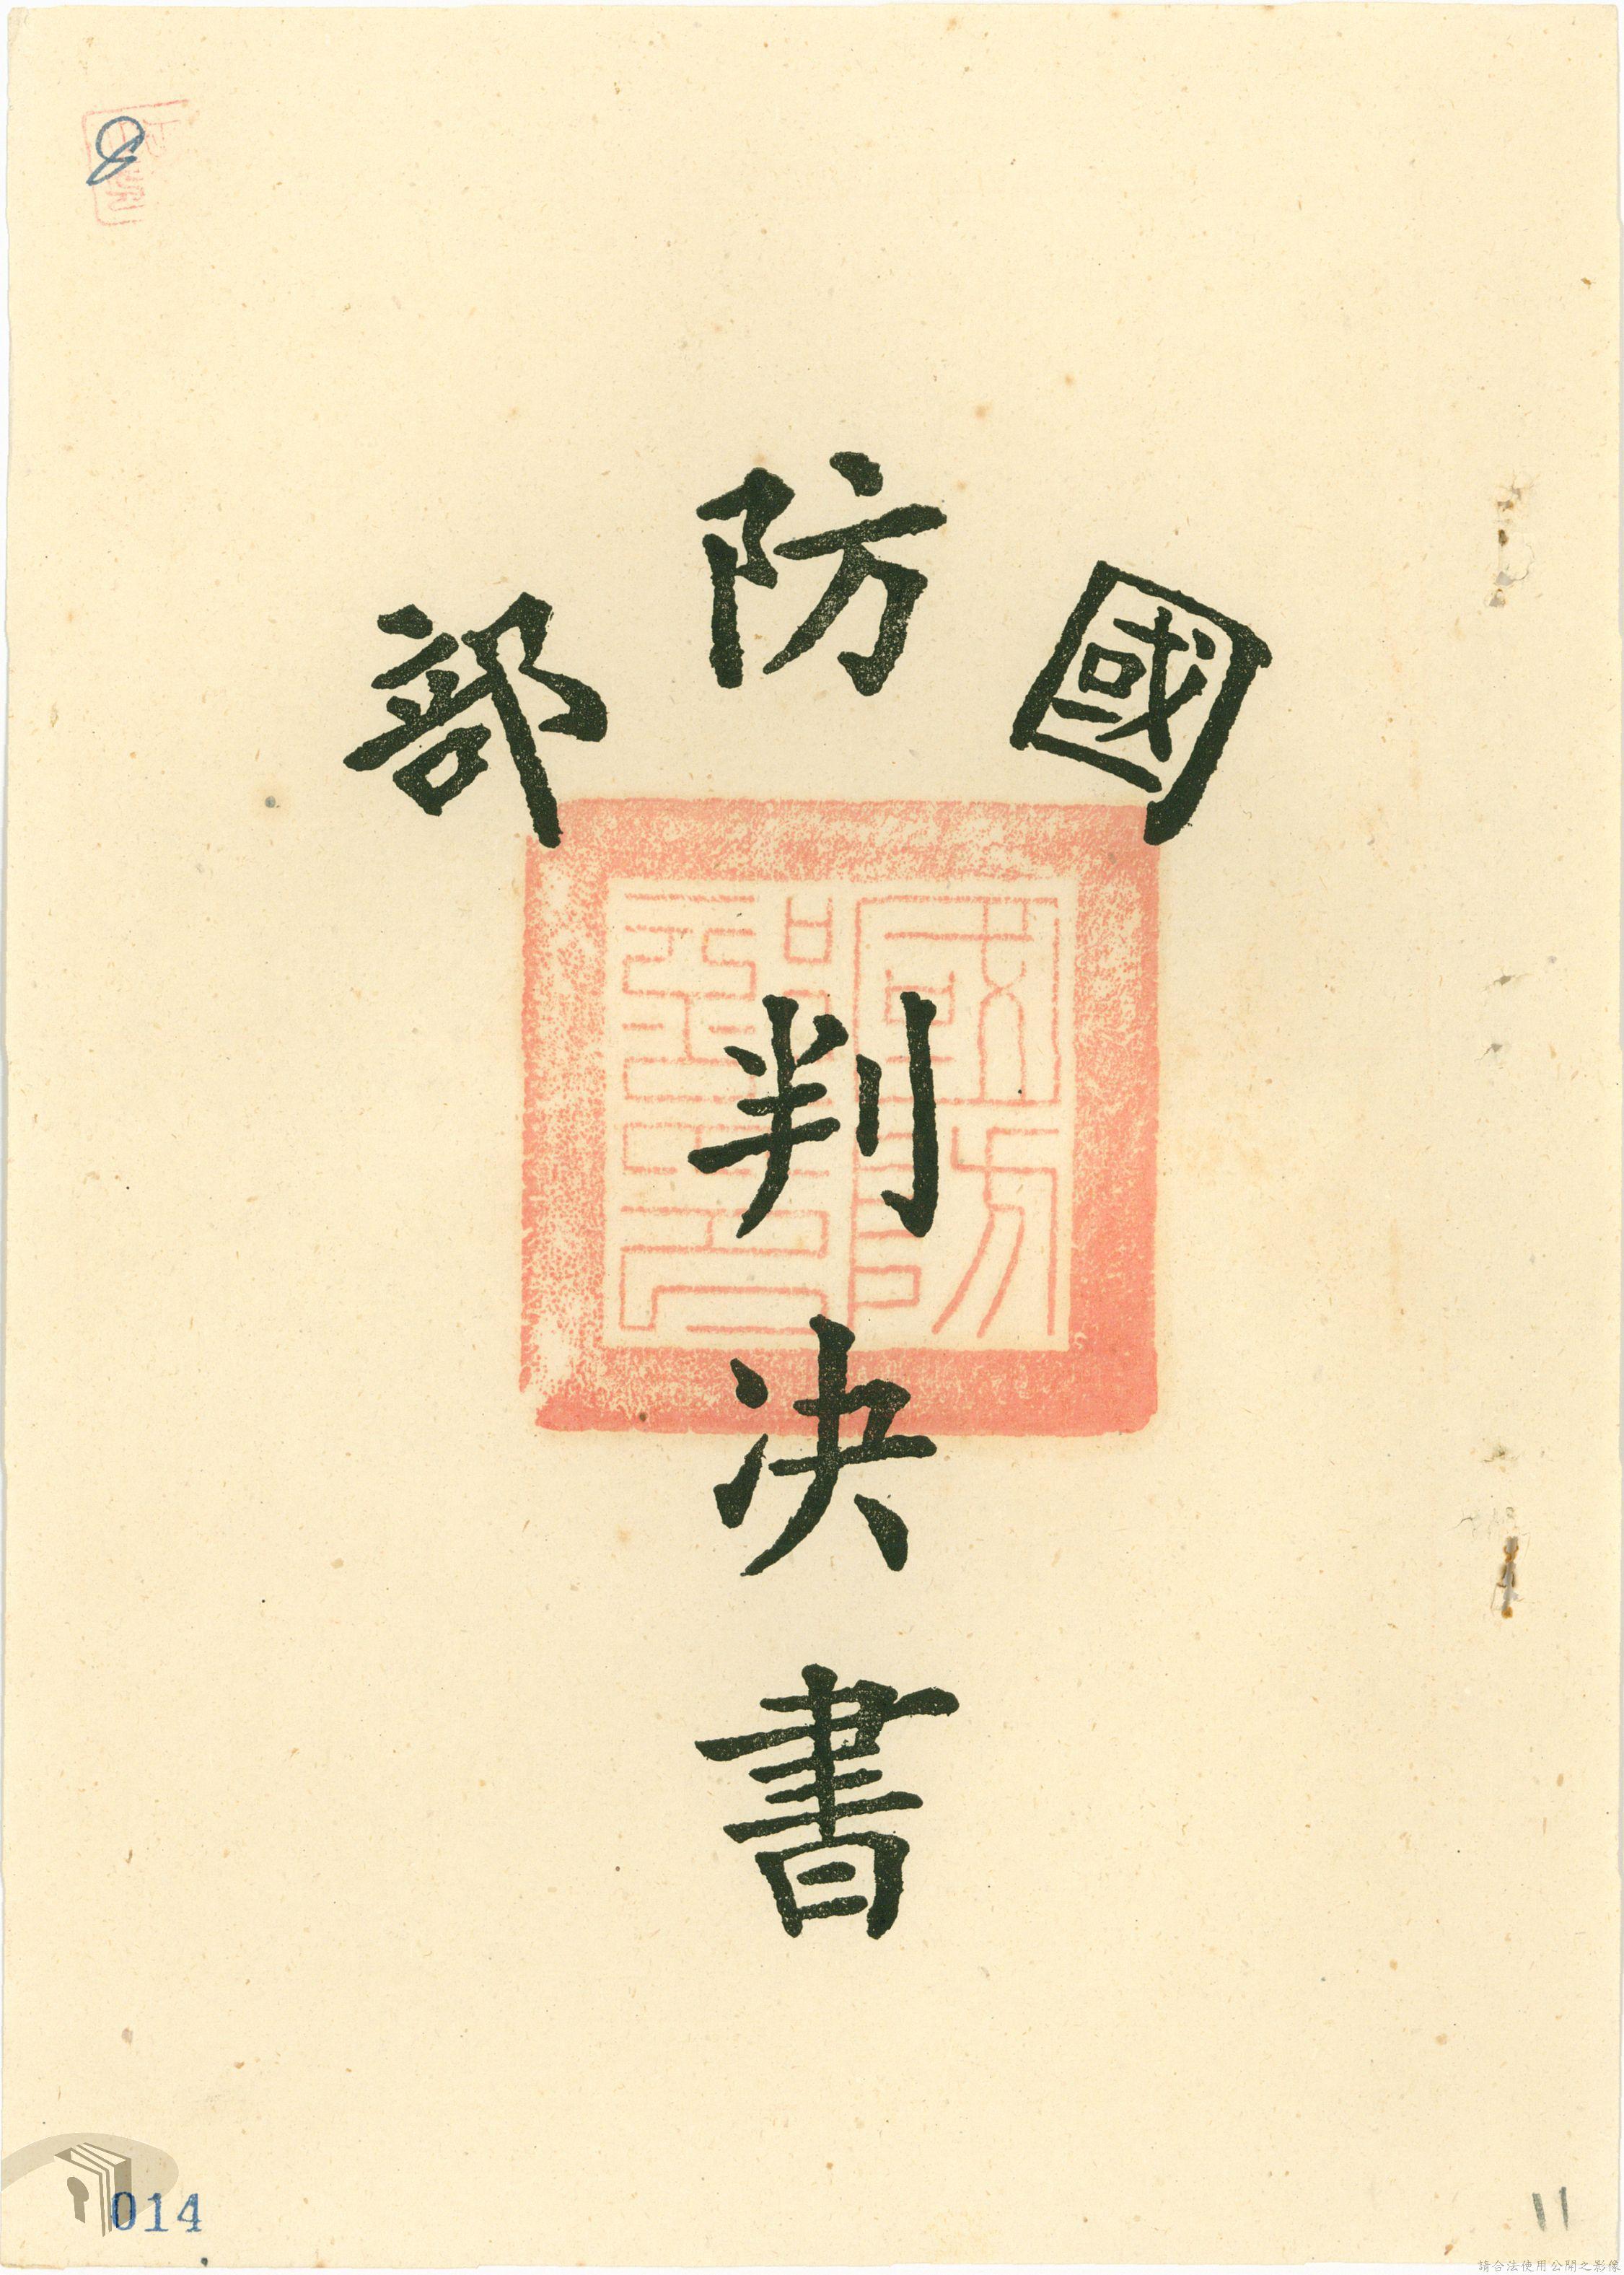 國防部
判決書
國防部印
014
11
請合法使用公開之影像